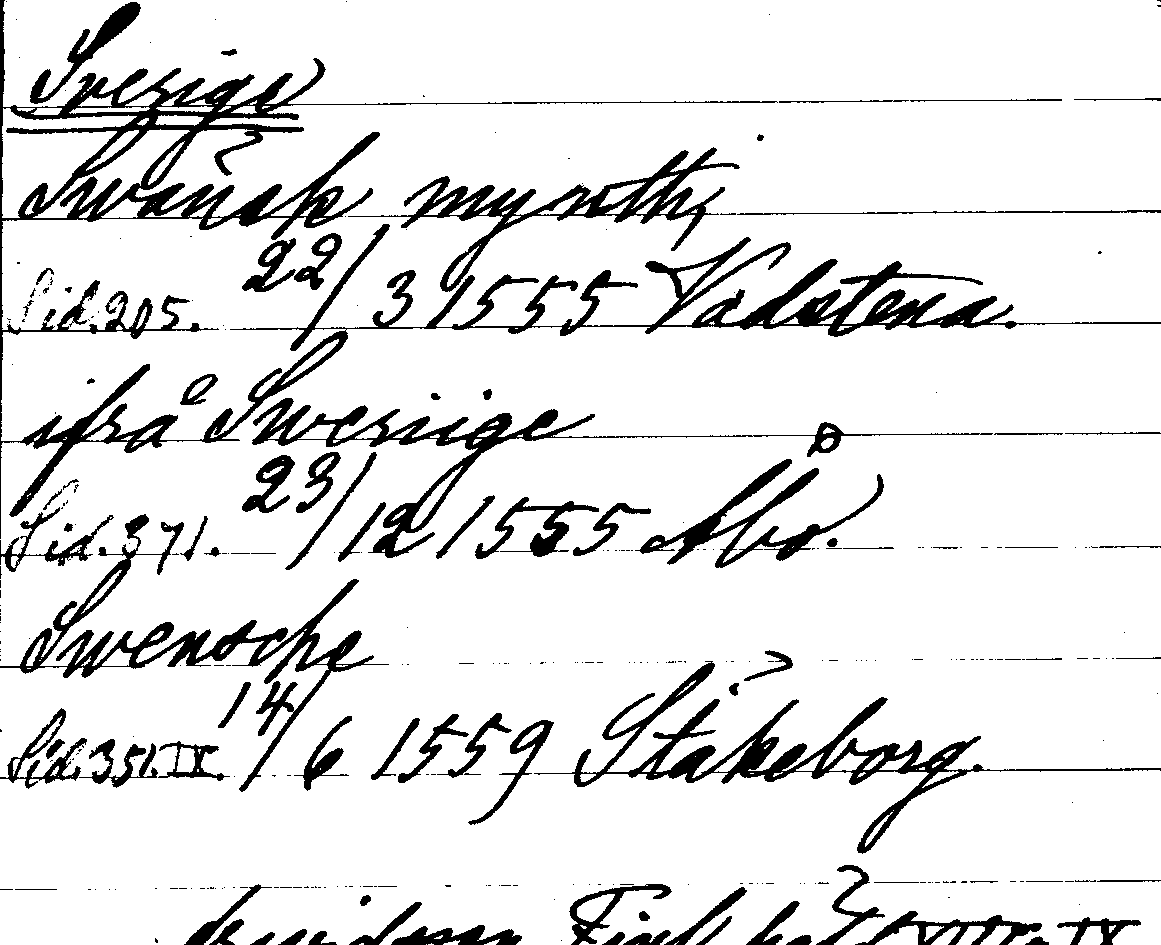 Sverige
Swänsk mynth,
Sid. 205. 22/3 1555 Vadstena.
ifrå Sweriige
Sid. 371. 23/12 1555 Åbo.
Swensche
Sid. 351. IX. 14/6 1559 Stäkeborg.